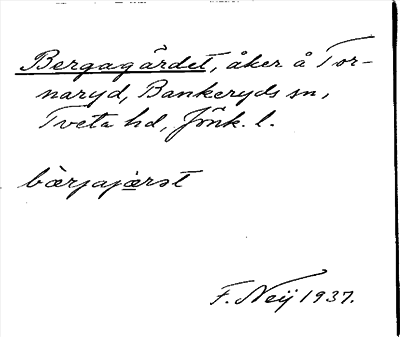 Bergagärdet, åker å Tor-
naryd, Bankeryds sn,
Tveta hd, Jönk. l.
bærjajærət
F. Neij 1937.